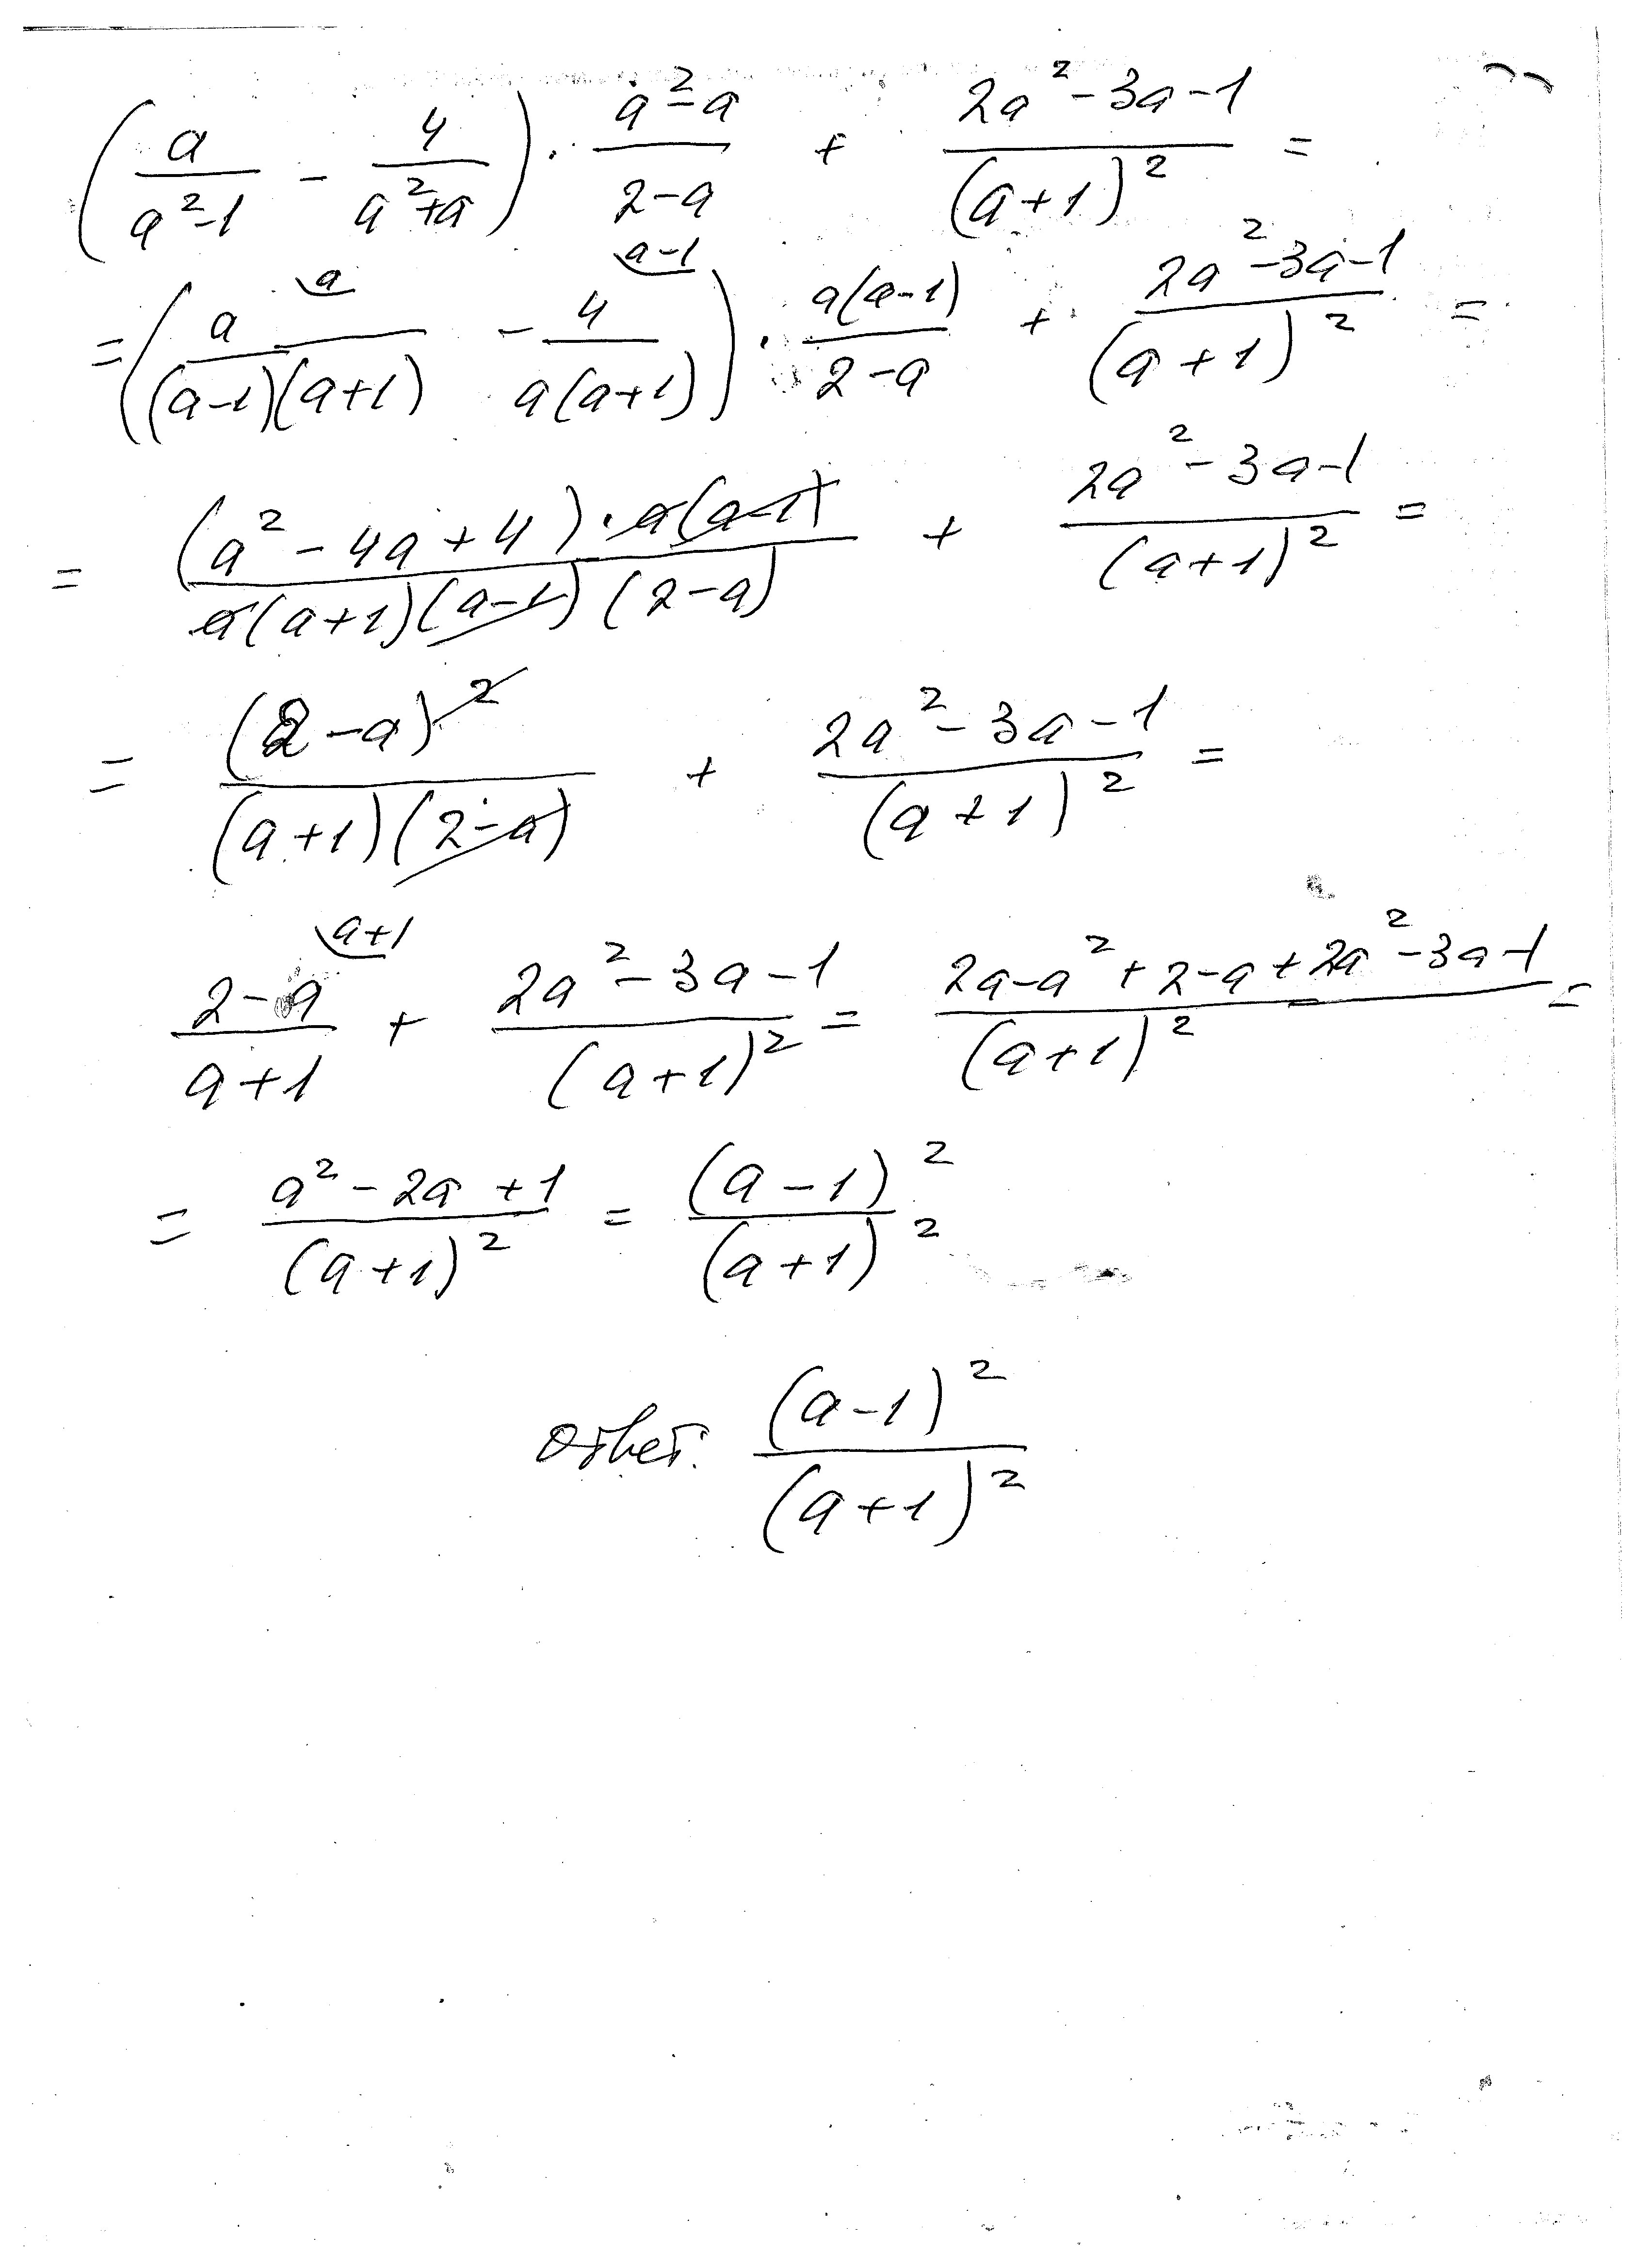 (a/(a²-1) - 4/(a²+a)) · (a²-a)/(2-a) + (2a²-3a-1)/(a+1)² =
= (a\a/((a-1)(a+1)) - 4\a-1/(a(a+1))) · a(a-1)/(2-a) + (2a²-3a-1)/(a+1)² =
= (a²-4a+4)·a(a-1)/(a(a+1)(a-1)(2-a)) + (2a²-3a-1)/(a+1)² =
= (2-a)²/((a+1)(2-a)) + (2a²-3a-1)/(a+1)² =
(2-a)\a+1/(a+1) + (2a²-3a-1)/(a+1)² = (2a-a²+2-a+2a²-3a-1)/(a+1)² =
= (a²-2a+1)/(a+1)² = (a-1)²/(a+1)²
Ответ: (a-1)²/(a+1)²